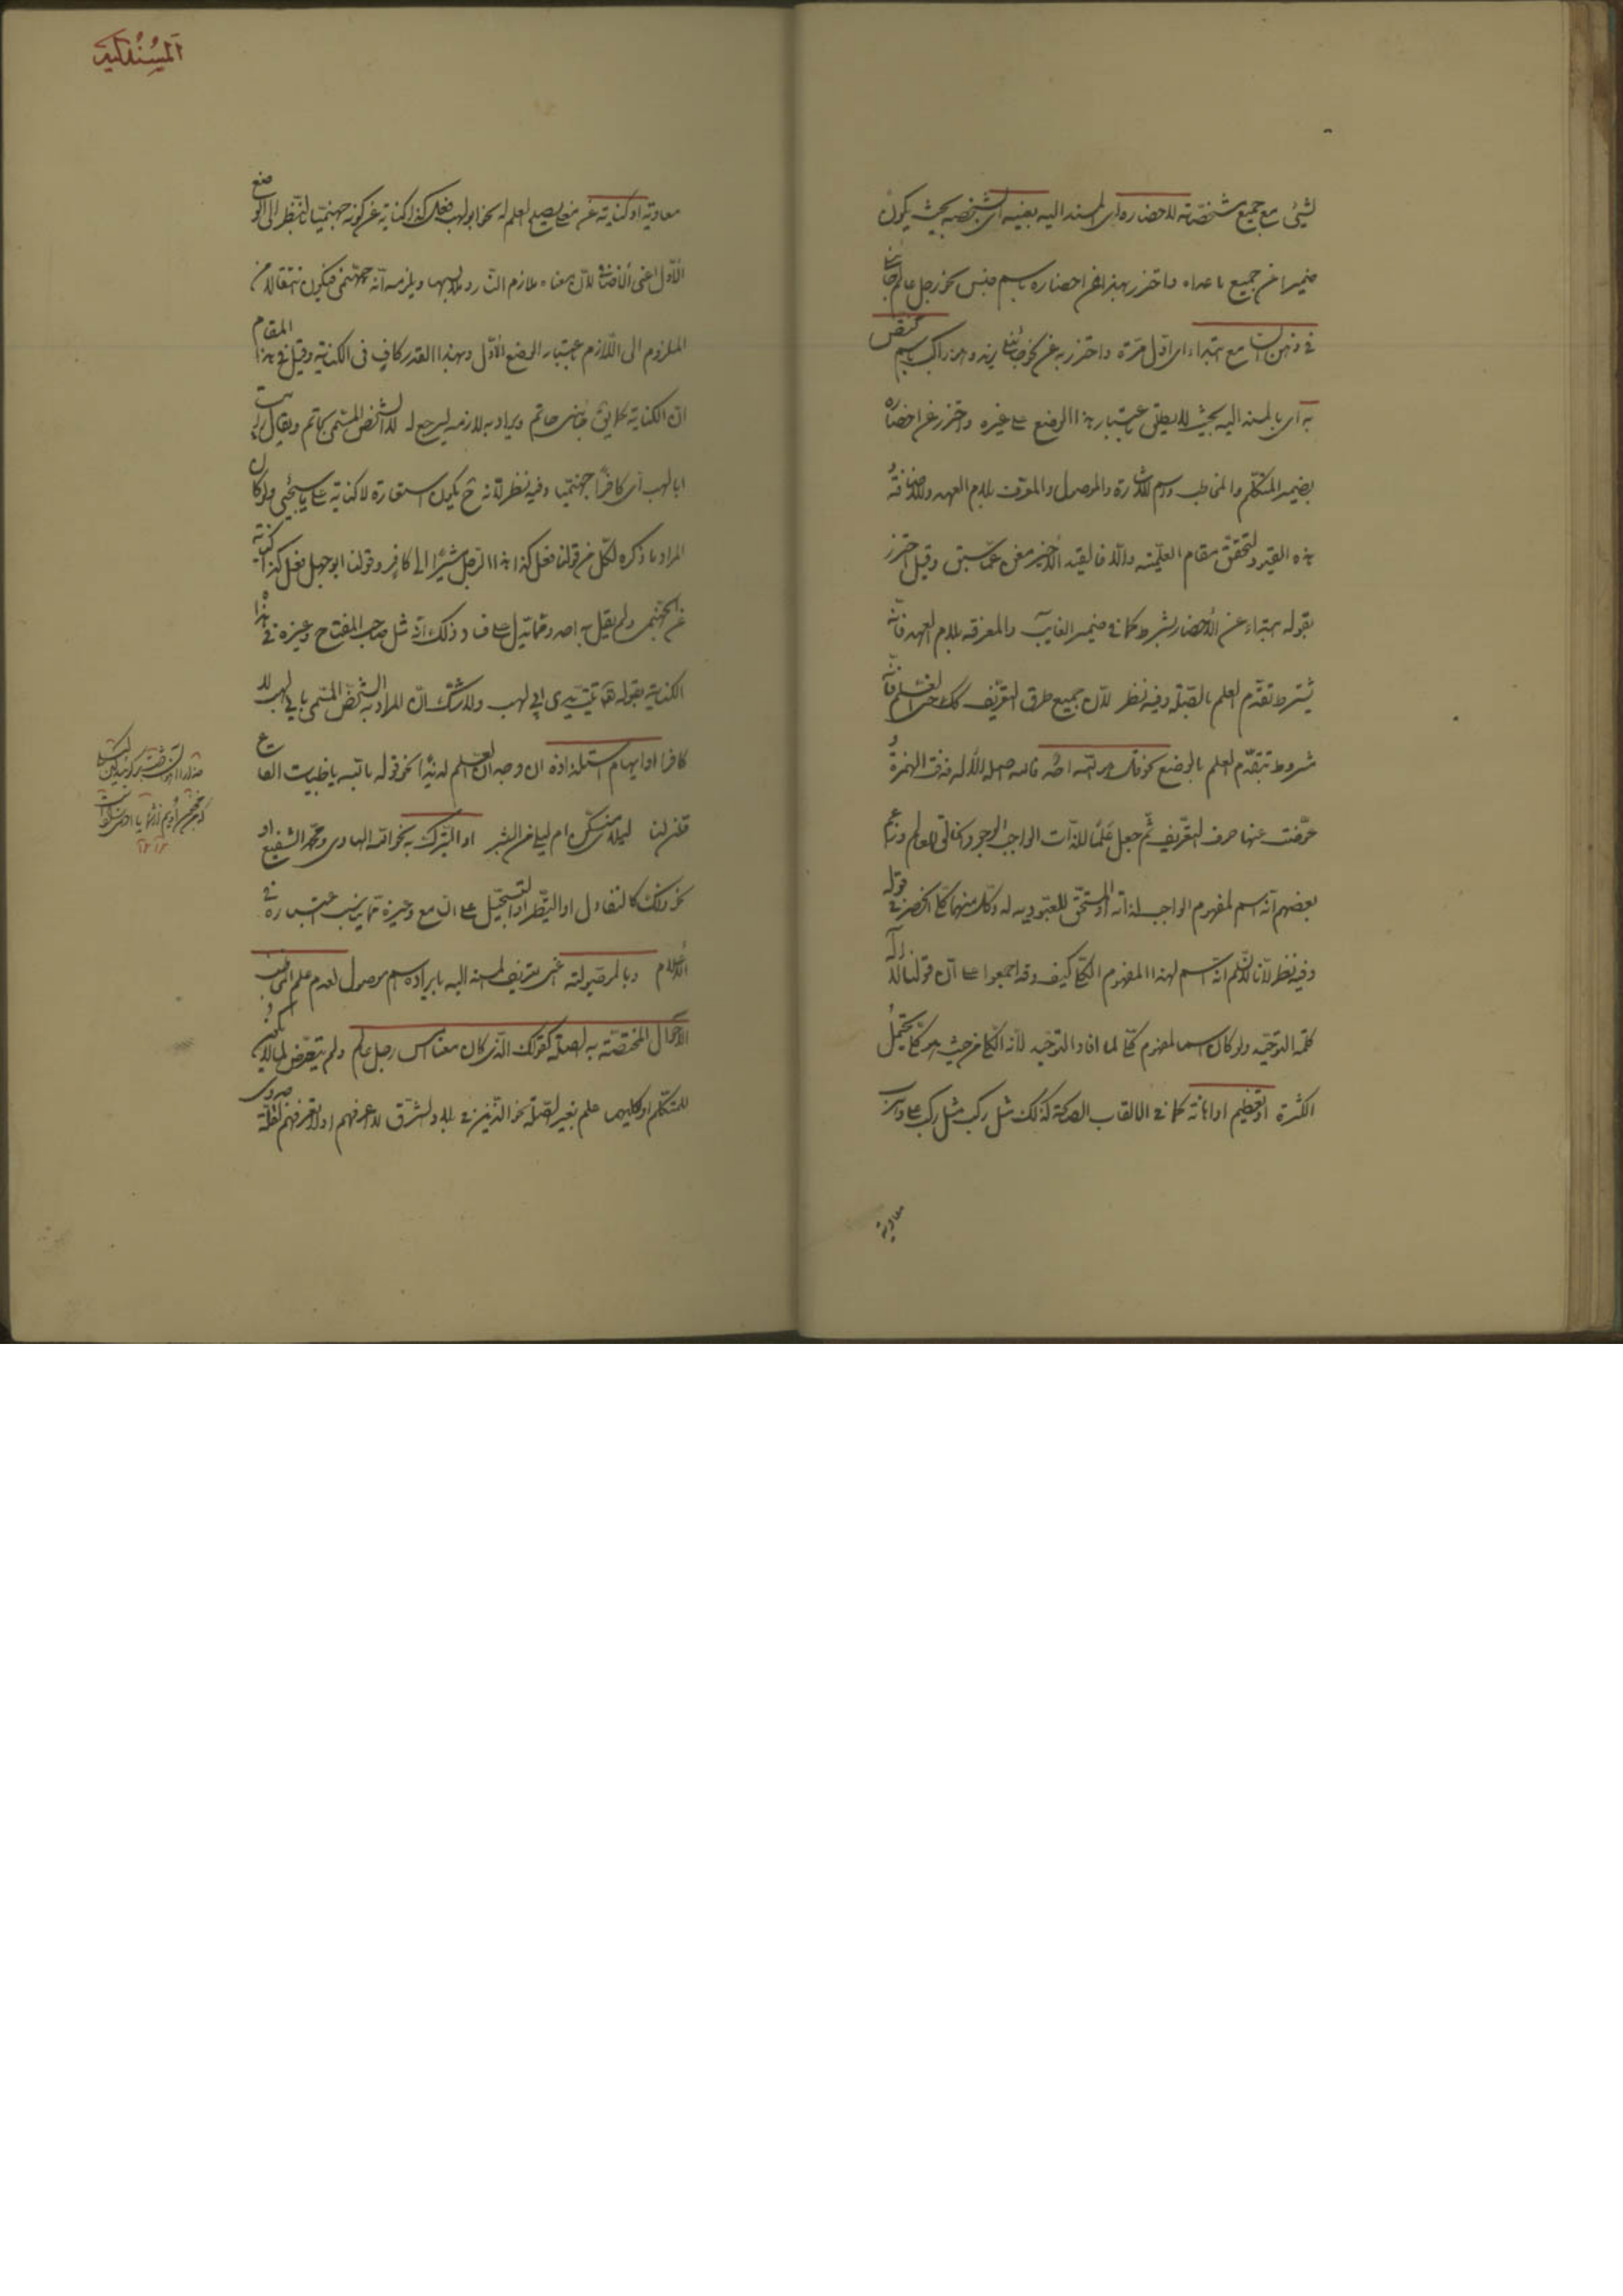 لشئ مع جميع مشخصاته لاحضاره اى المسند اليه بعينه اى بشخصه بحيث يكون
متميزا عن جميع ما عداه واحترز بهذا عن احضاره باسم جنس نحو رجل عالم جاءنى
فى ذهن السامع ابتداء اى اول مرة واحترز به عن نحو جاءنى زيد وهو راكب باسم مختص
به اى بالمسند اليه بحيث لا يطلق باعتبار هذا الوضع على غيره واحترز عن احضاره
بضمير المتكلم والمخاطب واسم الاشارة والموصول والمعرف بلام العهد والاضافة و
هذه القيود لتحقق مقام العلمية والا فالقيد الاخير مغن عما سبق وقيل احترز
بقوله ابتداء عن الاحضار بشرط كما فى ضمير الغايب والمعرف بلام العهد فانه
يشترط تقدم العلم بالصلة وفيه نظر لان جميع طرق التعريف كك حتى العلم فانه
مشروط بتقدم العلم بالوضع نحو قل هو الله احد فالله اصله الاله حذفت الهمزة و
عوضت عنها حرف التعريف ثم جعل علما للذات الواجب الوجود الخالق للعالم وزعم
بعضهم انه اسم لمفهوم الواجب لذاته او المستحق للعبودية له وكل منهما كلى انحصر فى
وفيه نظر لانا لا نسلم انه اسم لهذا المفهوم الكلى كيف وقد اجمعوا على ان قولنا لا اله
كلمة التوحيد ولو كان اسما لمفهوم كلى لما افاد التوحيد لانه الكلى من حيث هو كلى يحتمل
الكثرة او تعظيم او اهانة كما فى الالقاب الصالحة لذلك مثل ركب على وهرب
معاوية
المسند اليه
معاوية او كناية عن معنى يصلح العلم له نحو ابو لهب فعل كذا كناية عن كونه جهنميا بالنظر الى الوضع
الاول اعنى الاضافى لان معناه ملازم النار وملابسها ويلزمه انه جهنمى فيكون انتقالا من
الملزوم الى اللازم باعتبار الوضع الاول وهذا القدر كاف فى الكناية وقيل فى هذا المقام
ان الكناية كما يق جاءنى حاتم ويراد به لازمه اى جواد لا الشخص المسمى بحاتم ويقال رايت
ابا لهب اى كافرا جهنميا وفيه نظر لانه ح يكون استعارة لا كناية على ما سيجئ ولو كان
المراد ما ذكره لكان قولنا فعل كذا هذا الرجل مشيرا الى كافر وقولنا ابو جهل فعل كذا كناية
عن الجهنمى ولم يقل به احد ومما يدل على فساد ذلك انه مثل صاحب المفتاح وغيره فى هذه
الكناية بقوله تعالى تبت يدا ابى لهب ولا شك ان المراد به الشخص المسمى بابى لهب لا
كافرا او ايهام استلذاذه اى وجدان العلم لذيذا نحو قوله بالله يا ظبيات القاع
قلن لنا ليلاى منكن ام ليلى من البشر او التبرك به نحو الله الهادى ومحمد الشفيع او
نحو ذلك كالتفاول او التطير او التسجيل على السامع وغيره مما يناسب اعتباره فى
الاعلام وبالموصولية اى تعريف المسند اليه بايراده اسم موصول لعدم علم المخاطب
بالاحوال المختصة به سوى الصلة كقولك الذى كان معنا امس رجل عالم ولم يتعرض لما لا يكون
للمتكلم او لكليهما علم بغير الصلة نحو الذين فى بلاد الشرق لا اعرفهم او لا نعرفهم لقلة جدوى